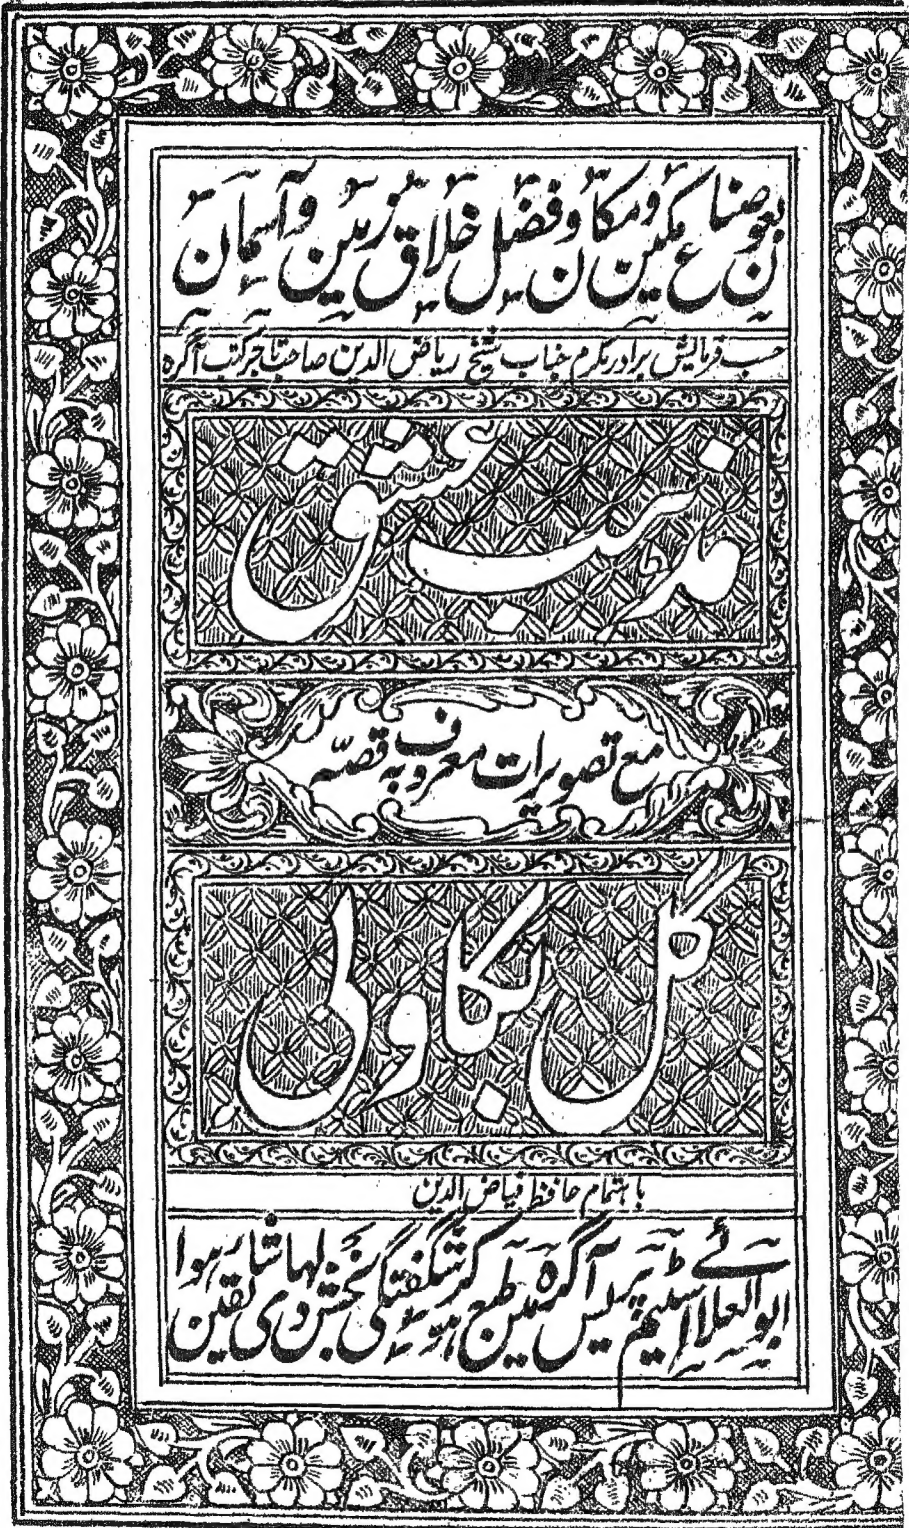 بعون صناع مکین و مکان و فضل خلاق زمین و آسمان
حسب فرمایش برادر مکرم جناب شیخ ریاض الدین صاحب تاجر کتب آگرہ
مذہب عشق
مع تصویرات معروف بہ قصّہ
گل بکاولی
باہتمام حافظ فیاض الدین
ابو العلائی اسٹیم پریس آگرہ میں طبع ہو کر شگفتگی بخش دلہائے شائقین ہوا